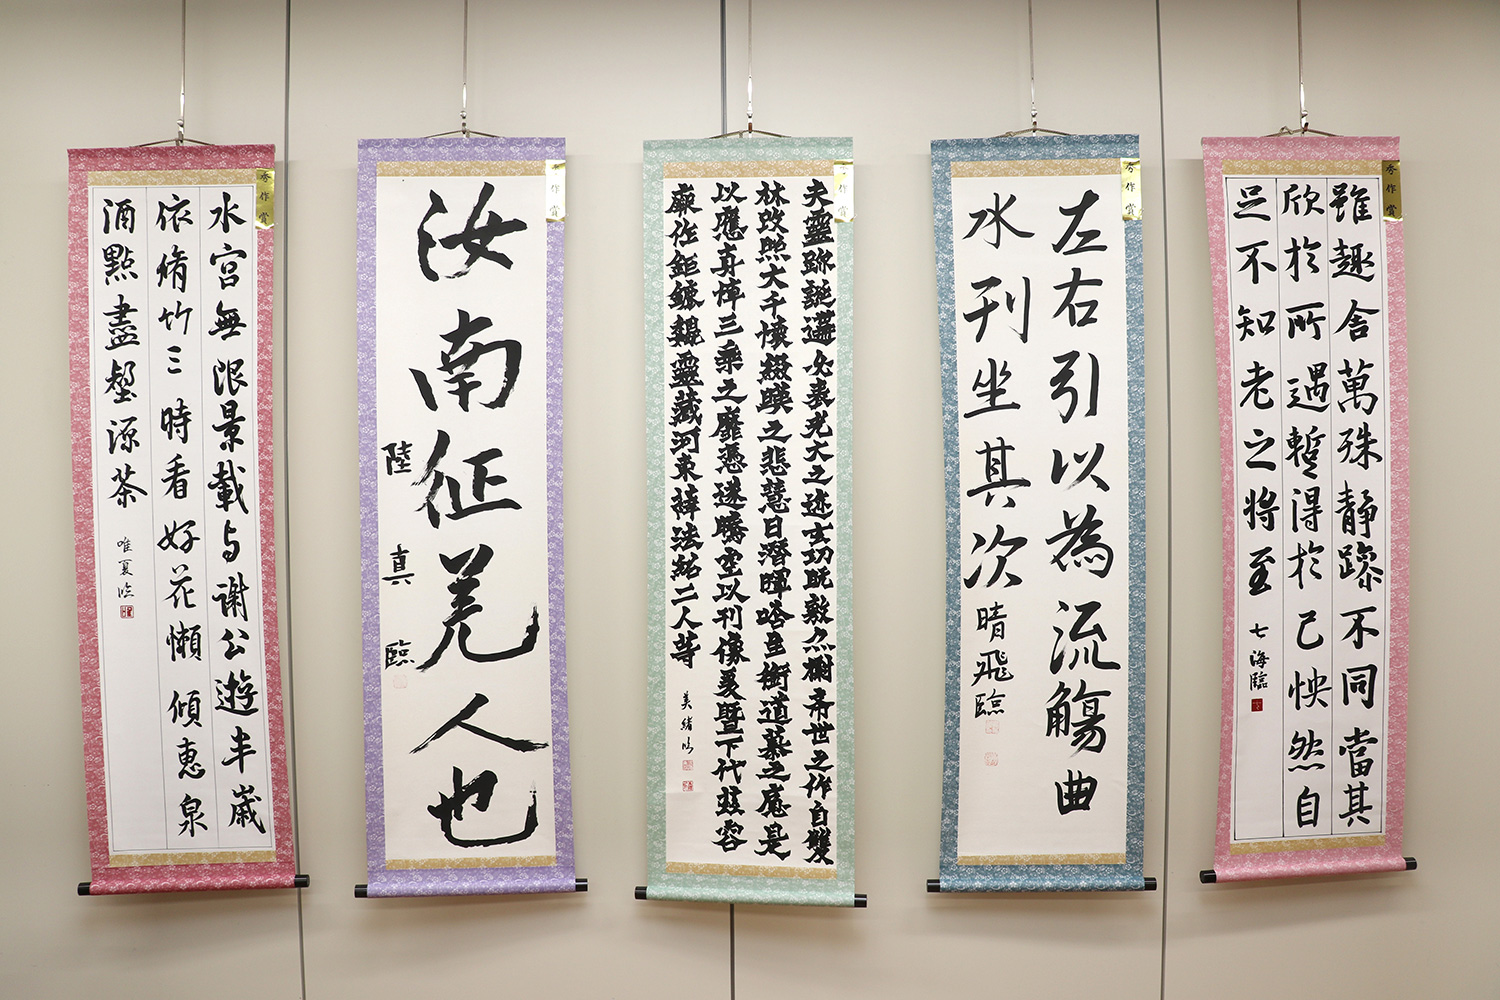 秀作賞
水宮無限景載与謝公遊半歳
依脩竹三時看好花懶傾惠泉
酒點盡壑源茶
唯夏臨
秀作賞
汝南征羌人也
陸真臨
秀作賞
夫靈跡誕遘必表光大之迹玄功既敷亦標希世之作自雙
林改照大千懷綴暎之悲慧日潛暉唅生銜道慕之痛是
以應真悼三乘之靡憑遂騰空以刊像爰暨下代茲容
厥作鉅鏕魏靈藏河東薛法紹二人等
美緒臨
秀作賞
左右引以為流觴曲
水列坐其次
晴飛臨
秀作賞
雖趣舎萬殊静躁不同當其
欣於所遇暫得於己怏然自
足不知老之将至
七海臨